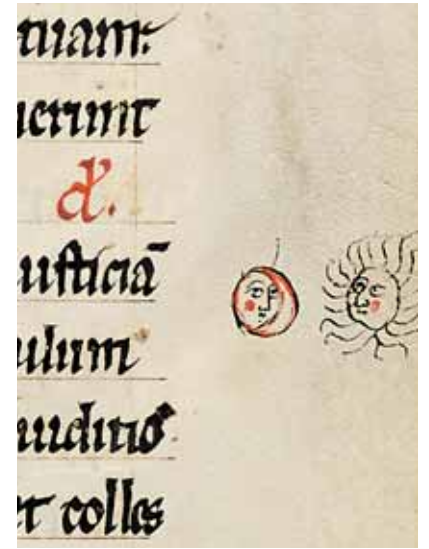 tuam:
uerunt
usticiā
ulum
iudicio.
et colles